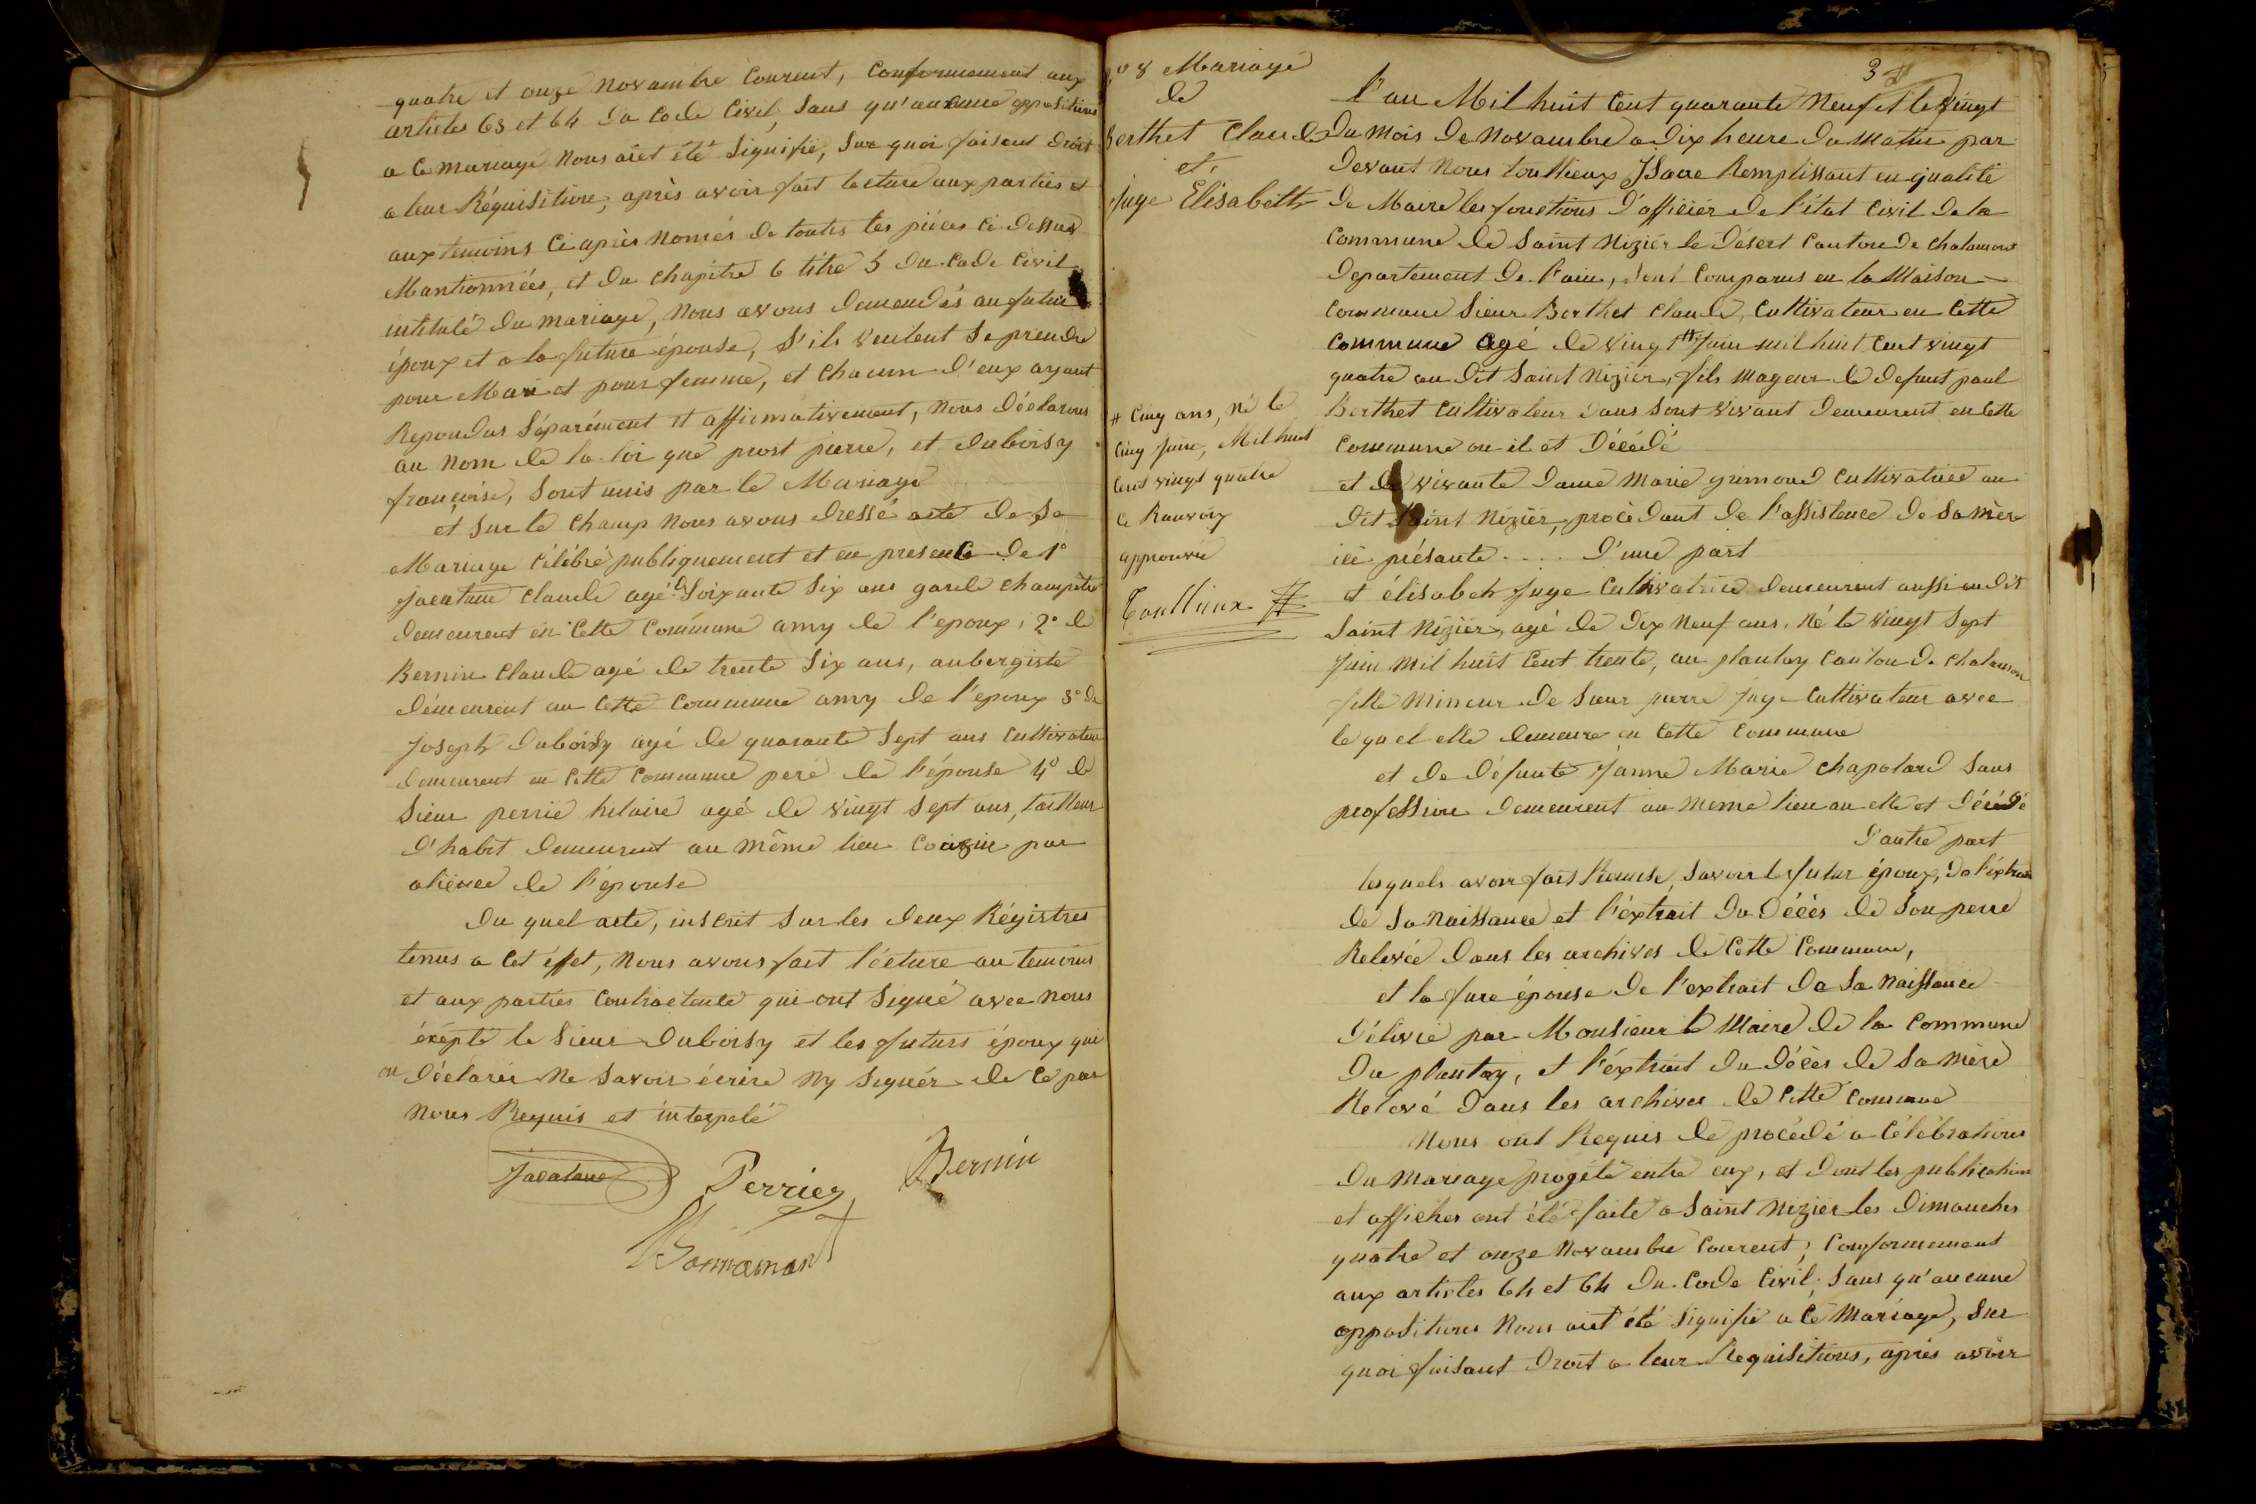 quatre et onze novambre courent, conformement aux
articles 63 et 64 du code civil, sans qu'aucune oppositions
a ce mariage nous aiet été signifié, sur quoi faisent droit
a leur Réquisitions, après avoir fait lecture aux parties et
aux temoins ci après només de toutes les pièces ci dessus
Mantionnées, et du chapitre 6 titre 5 du code civil
intitulé du mariage, nous avons demendés au futur
époux et a la future épouse, s'ils veulent se prendre
pour Mari et pour femme, et chacun d'eux ayant
Repondus séparément et affirmativement, nous déclarons
au nom de la loi que prost pierre, et duboisy
françoise, sont unis par le Mariage
et sur le champ nous avons dressé acte de ce
Mariage célébré publiquement et en presence de 1°
Jacatane claude agé de soixante six ans garde champêtre
demeurent en cette commune amy de l'epoux, 2° de
Bernin claude agé de trente six ans, aubergiste
demeurent en cette commune amy de l'epoux 3° de
Joseph duboisy agé de quarante sept ans cultivateur
demeurent en cette commune peré de l'épouse 4° de
sieur perrié helaire agé de vingt sept ans, tailleur
d'habit demeurent au même lieu coizin par
aliènce de l'épouse
Du quel acte, inscrit sur les deux Régistres
tenus a cet éffet, nous avons fait lécture au temoins
et aux parties contractente qui ont signé avec nous
éxépté le sieur duboisy et les futurs époux qui
on déclarés ne savoir écrire ny signér de ce par
nous Requis et interpelé
Jacatane Perrier Bernin
Bonnamant
No 8 Mariage
de
Berthet claude
et
Juge Elisabeth
# cinq ans, né le
cinq Juin, Mil huit
cent vingt quatre
ce Ranvoix
approuvée
Toullieux #
3
l'an Mil huit cent quarante neuf et le vingt
du mois de novambre a dix heure du matin par
devant nous toullieux Isaac Remplissant en qualité
de Maire les fonctions d'officiér de l'état civil de la
commune de saint Niziér le désert canton de chalamont
departement de l'ain, sont comparus en la Maison
commune sieur Berthet claude, cultivateur en cette
commune agé de vingt # Juin mil huit cent vingt
quatre au dit saint niziér, fils mageur de defunt paul
Berthet cultivateur dans sont vivant demeurent en cette
commune ou il et décédé
et de vivante dame marie grimond cultivatrice au
dit saint niziér, procèdant de l'assistence de sa mèr
ici présante .... d'une part
et élisabeh Juge cultivatrice demeurent aussi au dit
saint niziér, agé de dix neuf ans, né le vingt sept
Juin mil huit cent trente, au plantay canton de chalamon
fille mineur de sieur pierre juge cultivateur avec
le quel elle demeure en cette commune
et de défunte Janne Marie chapolard sans
profession demeurent au meme lieu ou elle et décédé
d'autre part
lesquels avoir fait Remise, savoir le futur époux, de l'extrait
de sa naissance et l'éxtrait du décès de son perre
Relevée dans les archives de cette commune,
et la fure épouse de l'extrait de sa naissance
délivré par Monsieur le Maire de la commune
du plantay, et l'éxtrait du décès de sa mère
Relevé dans les archives de cette commune
nous ont Requis de procédé a célébrations
du mariage progété entre eux, et dont les publication
et affiches ont été faite a saint niziér les dimanches
quatre et onze novambre courent, conformement
aux articles 64 et 64 du code civil, sans qu'aucune
oppositions nous aiet été signifié a ce mariage, sur
quoi faisant droit a leur Requisitions, après avoir